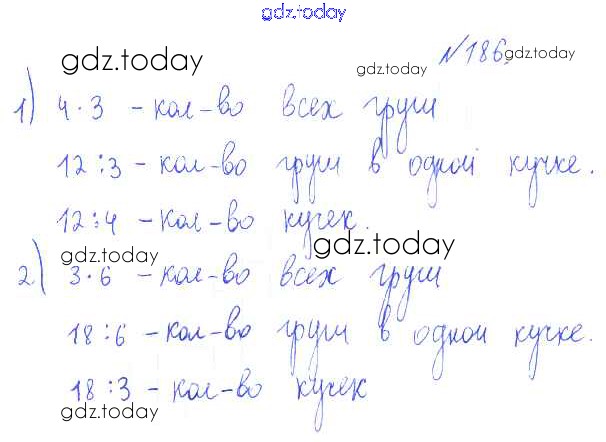 gdz.today
№186.
gdz.today gdz.today gdz.today
1) 4·3 - кол-во всех груш
12:3 - кол-во груш в одной кучке.
12:4 - кол-во кучек.
gdz.today gdz.today
2) 3·6 - кол-во всех груш
18:6 - кол-во груш в одной кучке.
18:3 - кол-во кучек
gdz.today